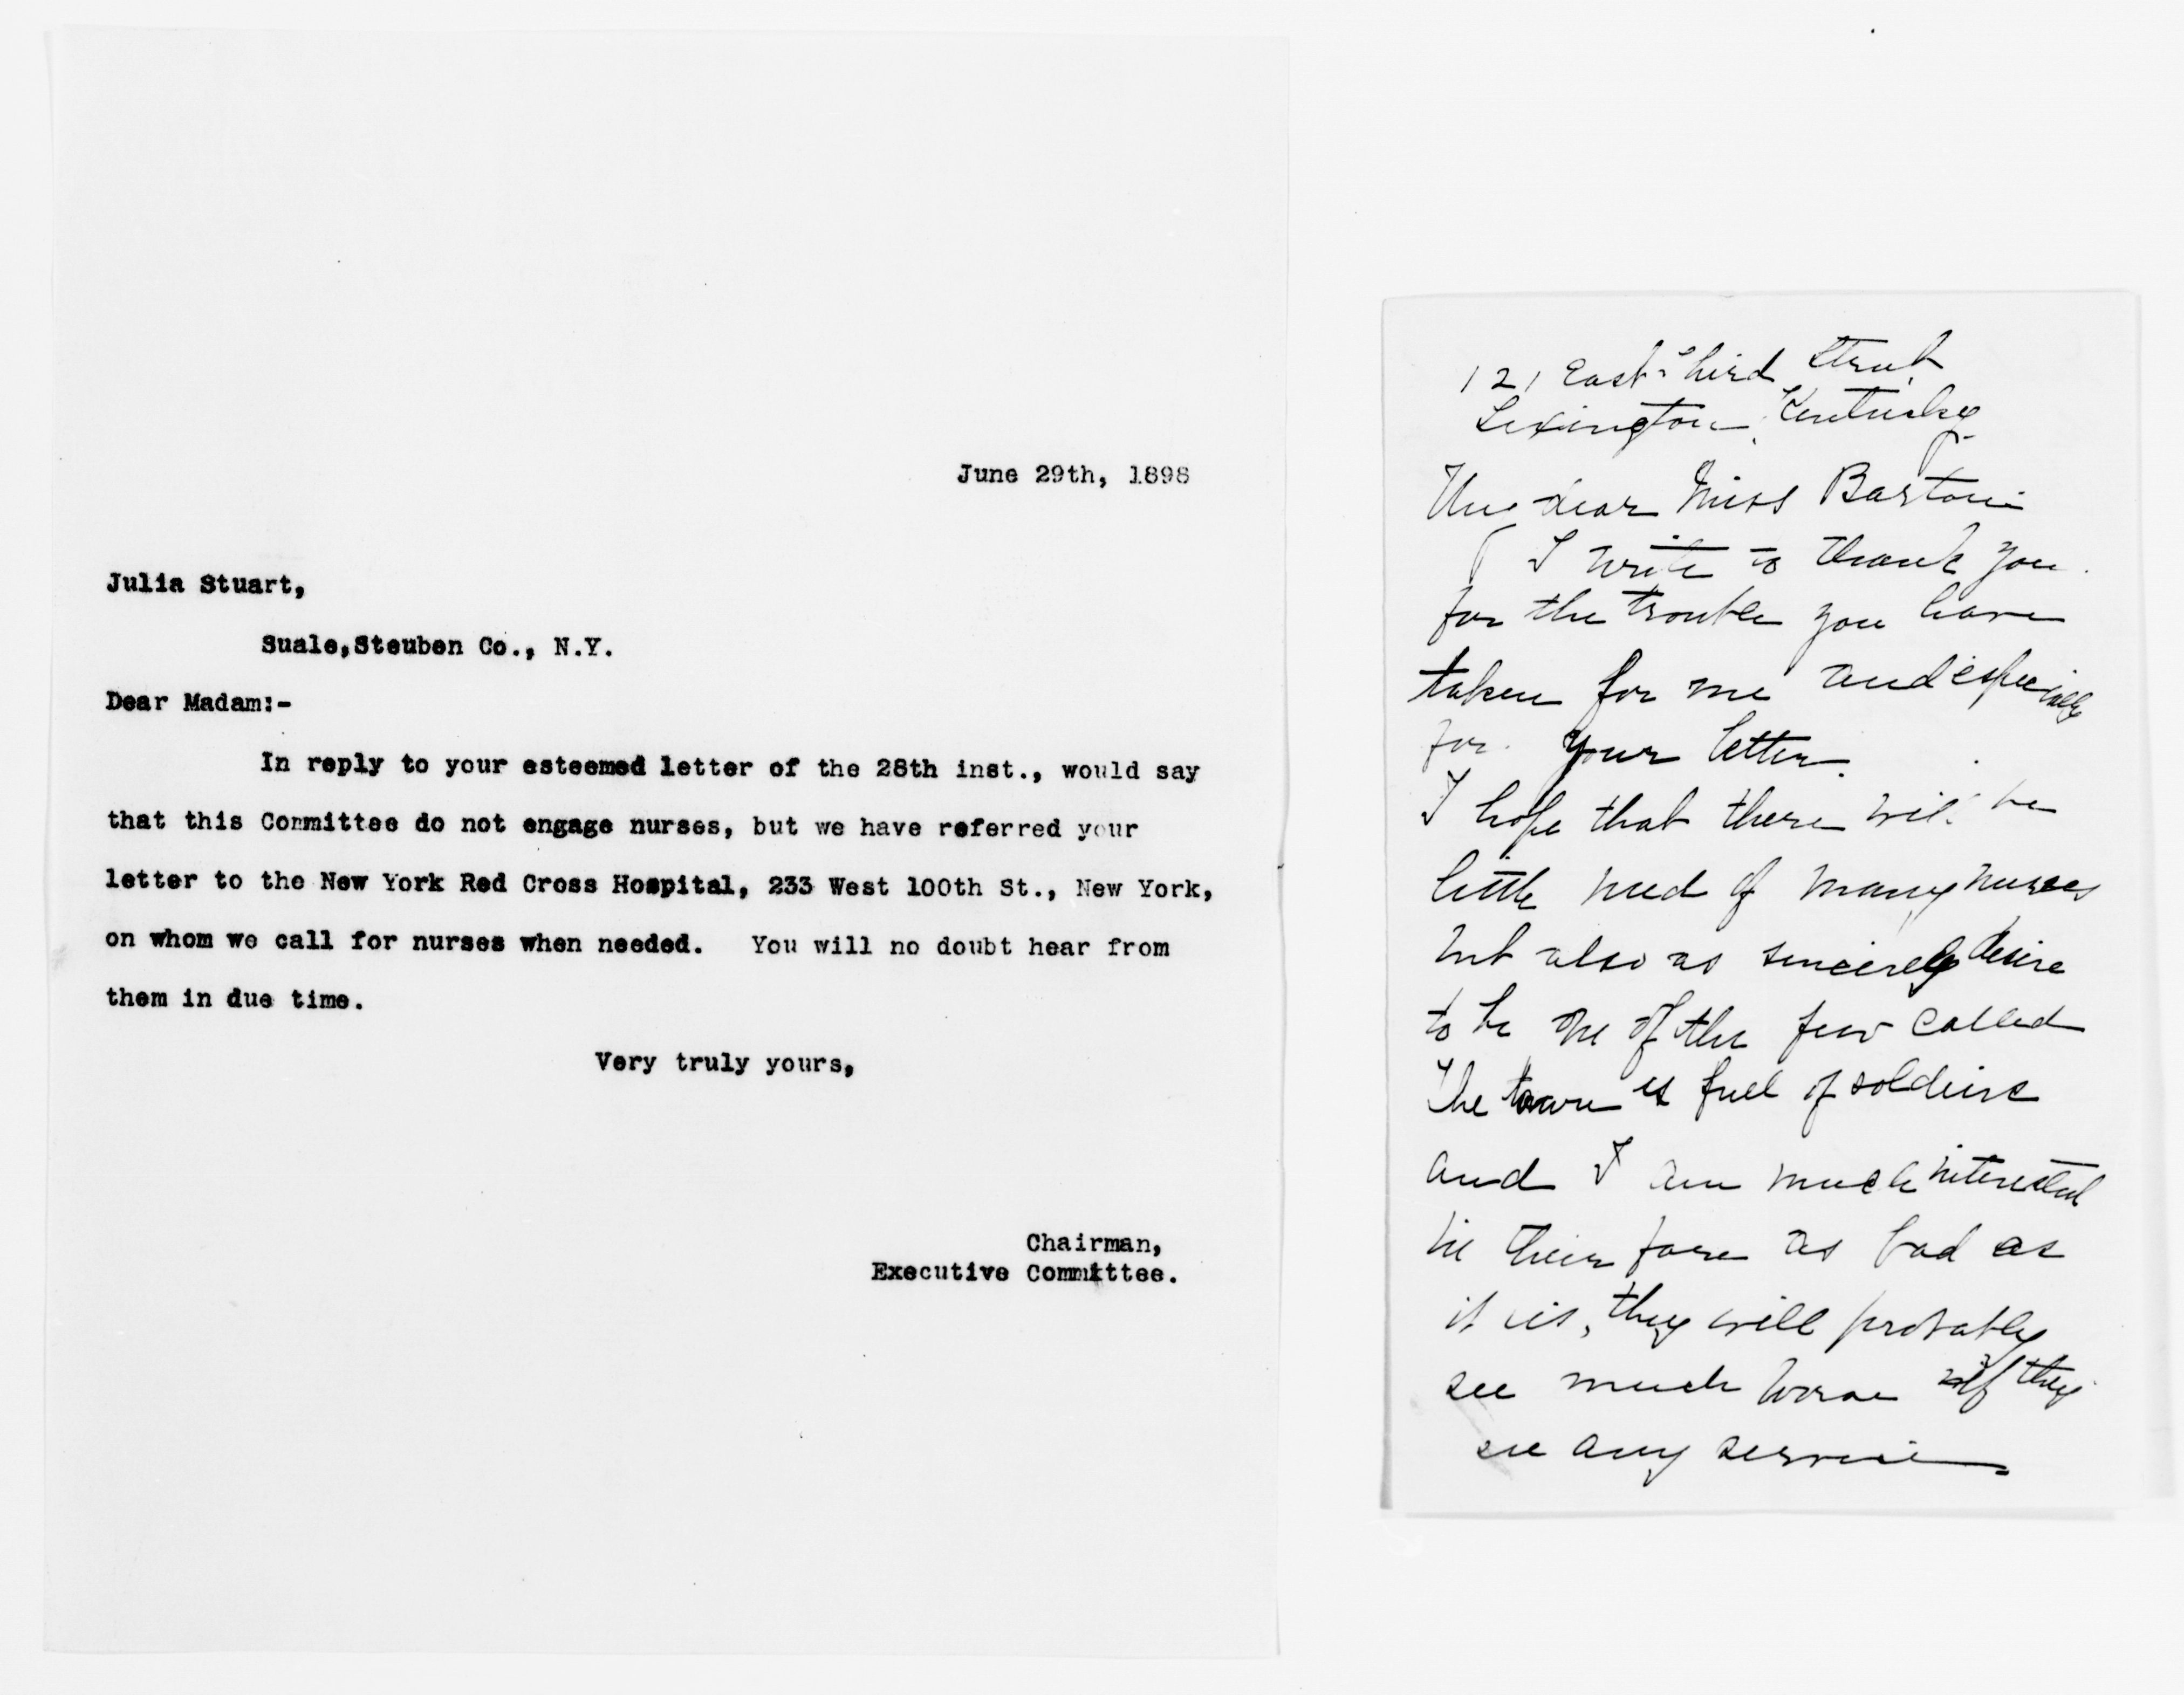 June 29th, 1898
Julia Stuart,
Suale,Steuben Co., N.Y.
Dear Madam:-
In reply to your esteemed letter of the 28th inst., would say
that this Committee do not engage nurses, but we have referred your
letter to the New York Red Cross Hospital, 233 West 100th St., New York,
on whom we call for nurses when needed. You will no doubt hear from
them in due time.
Very truly yours,
Chairman,
Executive Committee.
121 East Third Street
Lexington, Kentucky
My dear Miss Barton
I write to thank you
for the trouble you have
taken for me and especially
for your letter.
I hope that there will be
little need of many nurses
but also as sincerely desire
to be one of the few called
The town is full of soldiers
and I am much interested
in their fare as bad as
it is, they will probably
see much worse if they
see any service